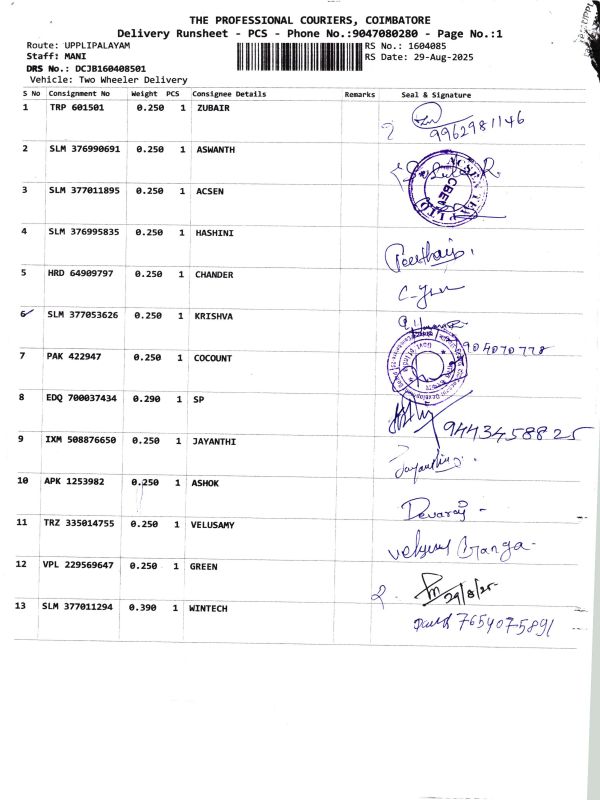 THE PROFESSIONAL COURIERS, COIMBATORE
Delivery Runsheet - PCS - Phone No.:9047080280 - Page No.:1
Route: UPPLIPALAYAM RS No.: 1604085
Staff: MANI RS Date: 29-Aug-2025
DRS No.: DCJB160408501
Vehicle: Two Wheeler Delivery
S No Consignment No Weight PCS Consignee Details Remarks Seal & Signature
1 TRP 601501 0.250 1 ZUBAIR 9962981146
2 SLM 376990691 0.250 1 ASWANTH
3 SLM 377011895 0.250 1 ACSEN
4 SLM 376995835 0.250 1 HASHINI
5 HRD 64909797 0.250 1 CHANDER
6 SLM 377053626 0.250 1 KRISHVA
7 PAK 422947 0.250 1 COCOUNT
8 EDQ 700037434 0.290 1 SP 9443458825
9 IXM 508876650 0.250 1 JAYANTHI Jayanthi
10 APK 1253982 0.250 1 ASHOK Devaraj -
11 TRZ 335014755 0.250 1 VELUSAMY
12 VPL 229569647 0.250 1 GREEN 29/8/25
13 SLM 377011294 0.390 1 WINTECH 7654075891